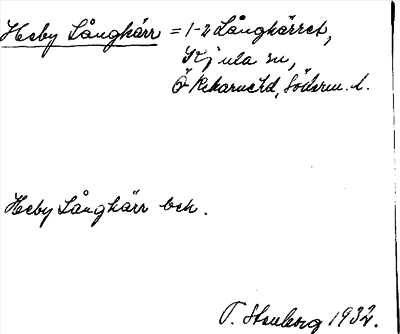 Heby Långkärr = 1-2 Långkärret,
Kjula sn,
Ö Rekarne hd, Söderm. l.
Heby Långkärr beh.
T. Stenberg 1932.